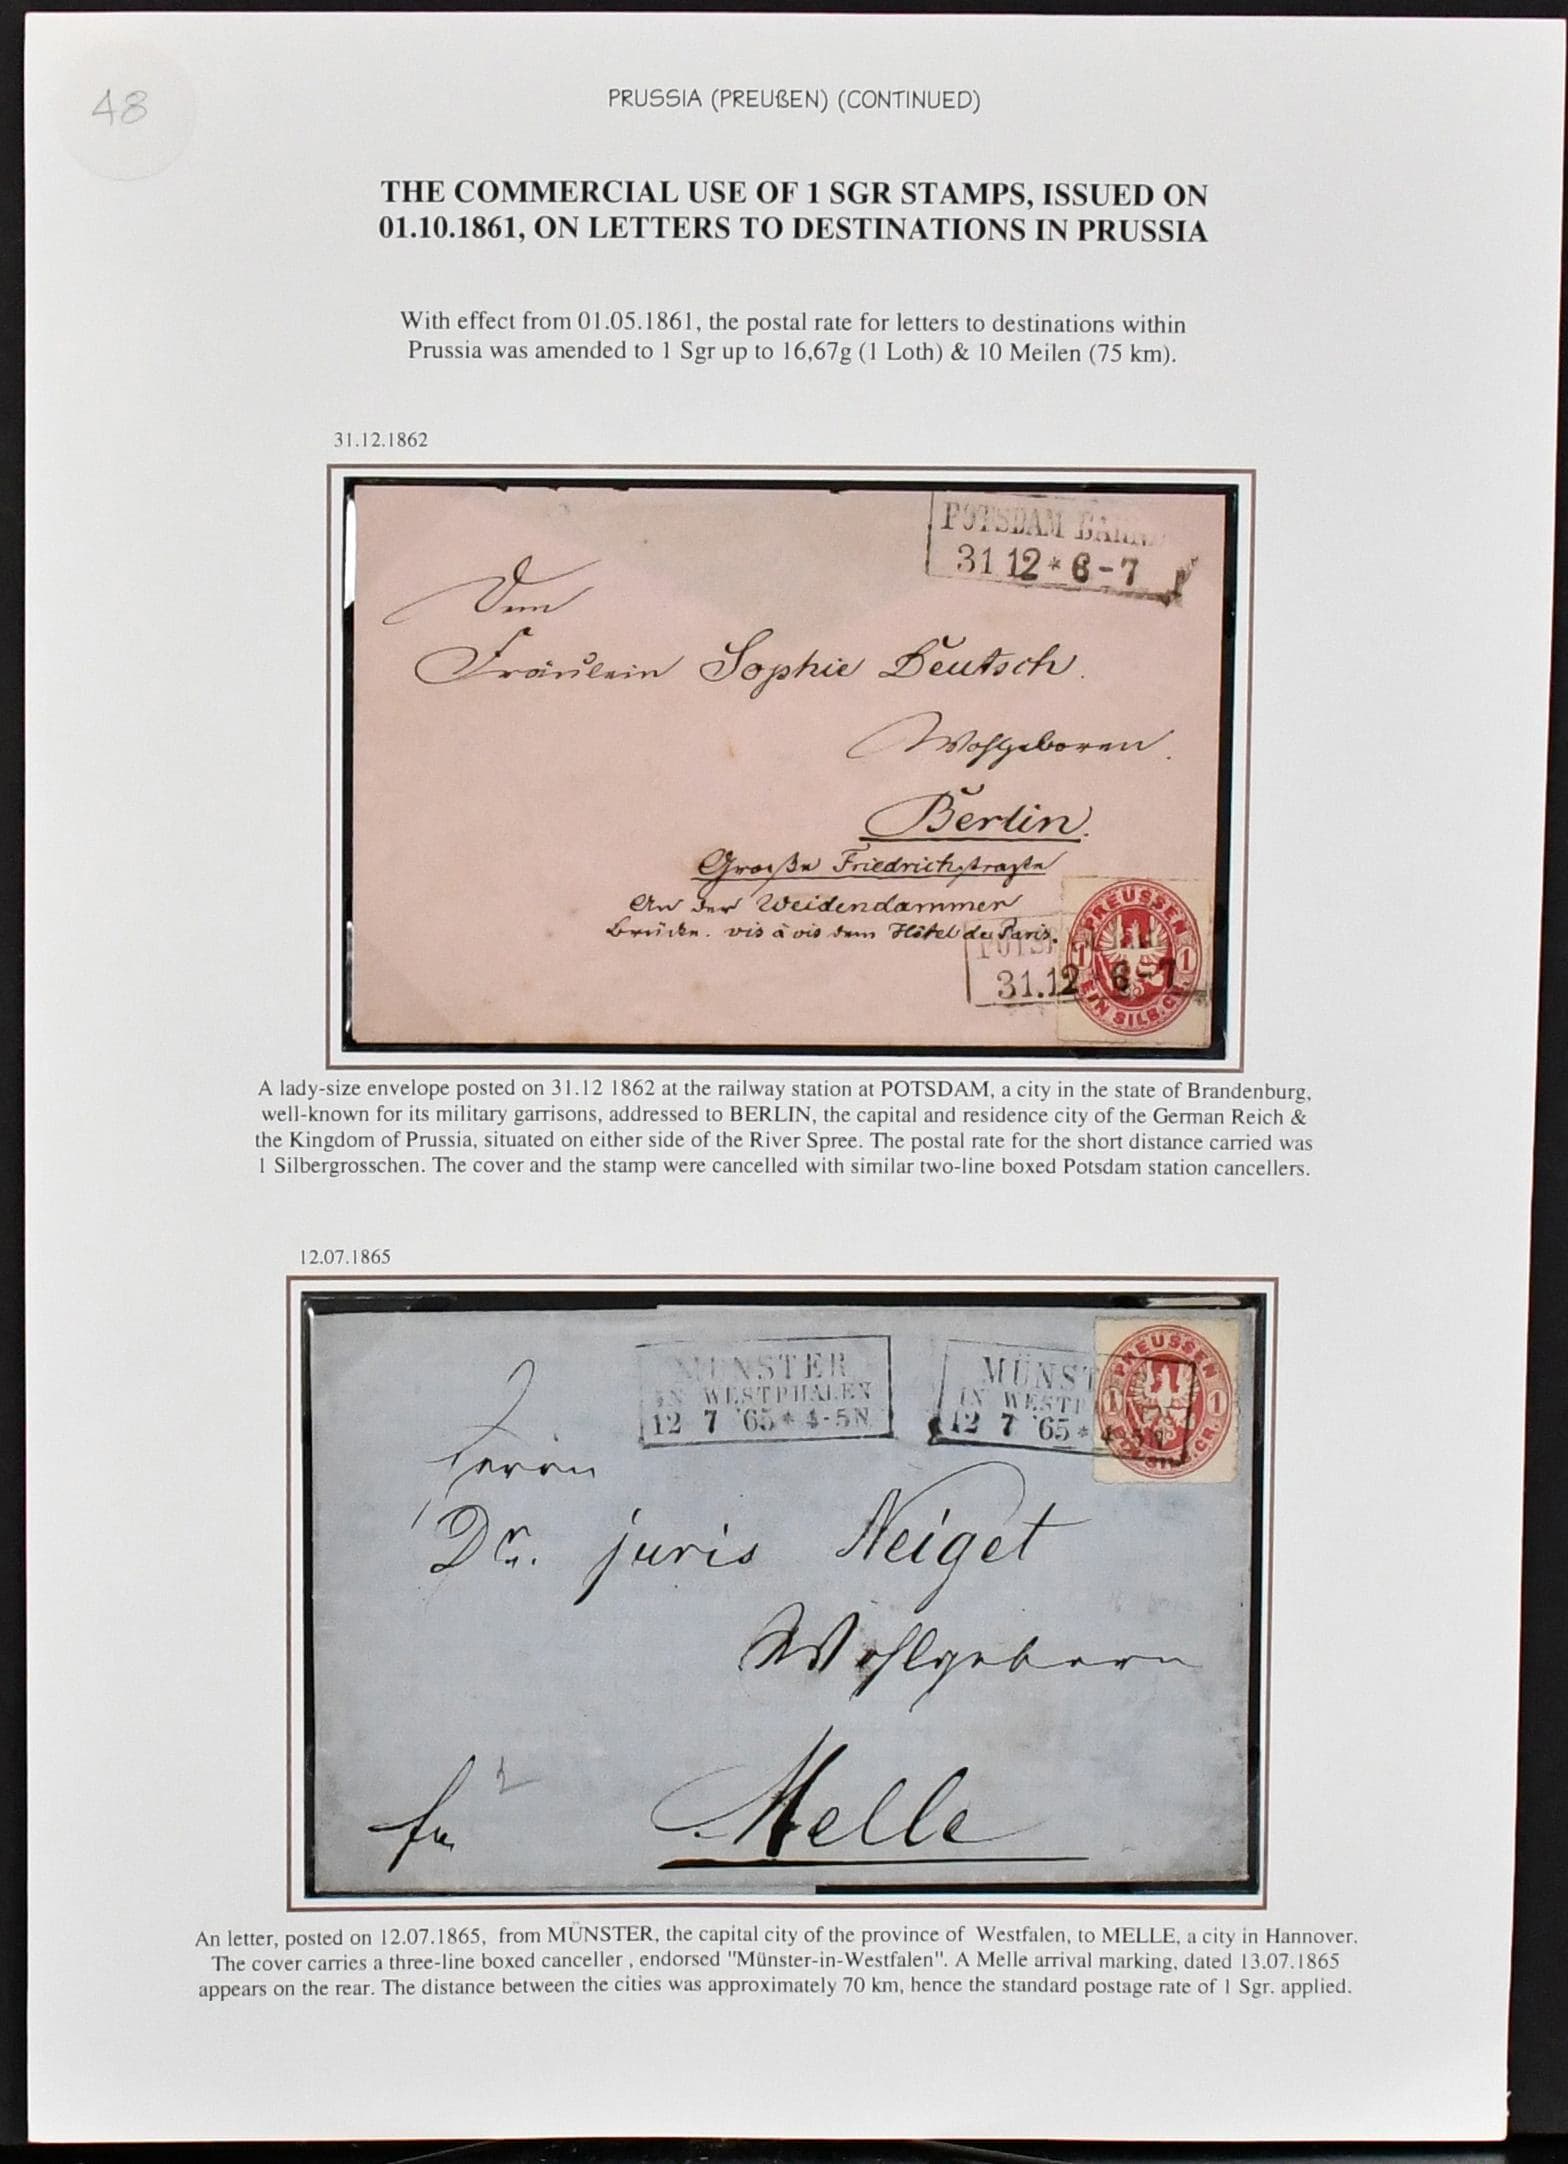 48
PRUSSIA (PREUßEN) (CONTINUED)
THE COMMERCIAL USE OF 1 SGR STAMPS, ISSUED ON
01.10.1861, ON LETTERS TO DESTINATIONS IN PRUSSIA
With effect from 01.05.1861, the postal rate for letters to destinations within
Prussia was amended to 1 Sgr up to 16,67g (1 Loth) & 10 Meilen (75 km).
31.12.1862
POTSDAM BAHN
31 12 * 6-7
Dem
Fräulein Sophie Deutsch.
Wohlgeboren.
Berlin.
Große Friedrichstraße
An der Weidendammer
Brücke. vis à vis dem Hôtel de Paris.
POTS
31.12 6-7
PREUSSEN
1 1
EIN SILB. GR.
A lady-size envelope posted on 31.12 1862 at the railway station at POTSDAM, a city in the state of Brandenburg,
well-known for its military garrisons, addressed to BERLIN, the capital and residence city of the German Reich &
the Kingdom of Prussia, situated on either side of the River Spree. The postal rate for the short distance carried was
1 Silbergrosschen. The cover and the stamp were cancelled with similar two-line boxed Potsdam station cancellers.
12.07.1865
MÜNSTER
IN WESTPHALEN
12 7 '65 * 4-5N
MÜNST
IN WESTP
12 7 '65 * 4-5N
PREUSSEN
1 1
EIN SILB. GR.
Herrn
Dr. juris Neiget
Wohlgeborn
fr.
Melle
An letter, posted on 12.07.1865, from MÜNSTER, the capital city of the province of Westfalen, to MELLE, a city in Hannover.
The cover carries a three-line boxed canceller , endorsed "Münster-in-Westfalen". A Melle arrival marking, dated 13.07.1865
appears on the rear. The distance between the cities was approximately 70 km, hence the standard postage rate of 1 Sgr. applied.